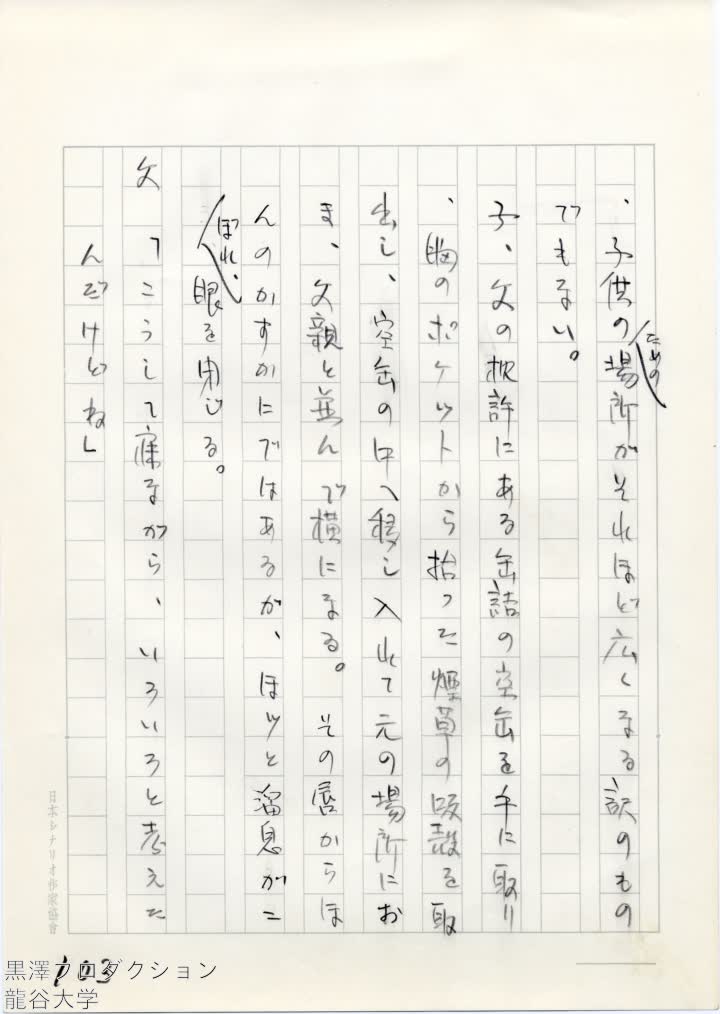 、子供のための場所がそれほど広くなる訳のもの
でもない。
子、父の枕許にある缶詰の空缶を手に取り
、胸のポケットから拾った煙草の吸殻を取
出し、空缶の中へ移し入れて元の場所にお
き、父親と並んで横になる。その唇からほ
んのかすかにではあるが、ほッと溜息がこ
ぼれ、眼を閉じる。
父「こうして寐ながら、いろいろと考えた
んだけどね」
日本シナリオ作家協會
103
黒澤プロダクション
龍谷大学